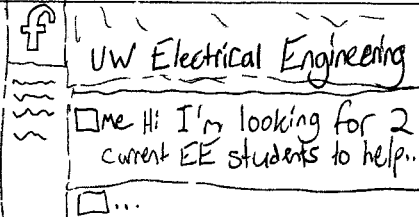 f
UW Electrical Engineering
me Hi I'm looking for 2
current EE students to help..
...